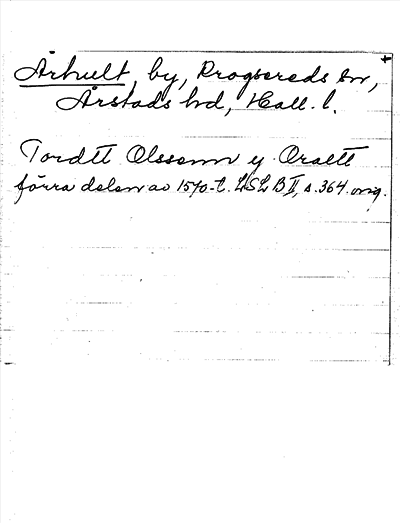 Århult, by, Drogsereds sn,
Årstads hd, Hall. l.
Tordtt Olssonn y Oraett
förra delen av 1570-t. LSL B II, s. 364. orig.